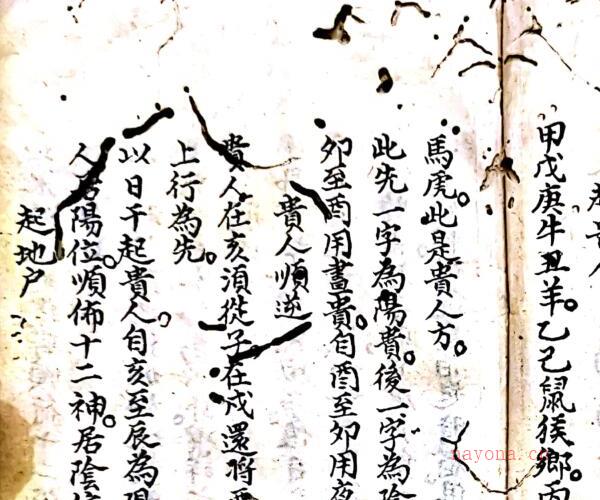 起貴人
甲戊庚牛丑羊。乙己鼠猴鄉。丙
馬虎。此是貴人方。
此先一字為陽貴。後一字為陰
卯至酉用晝貴。自酉至卯用夜
貴人順逆
貴人在亥須從子。在戌還將
上行為先。
以日干起貴人。自亥至辰為陽
人居陽位。順佈十二神。居陰位
起地户
nayona.cn